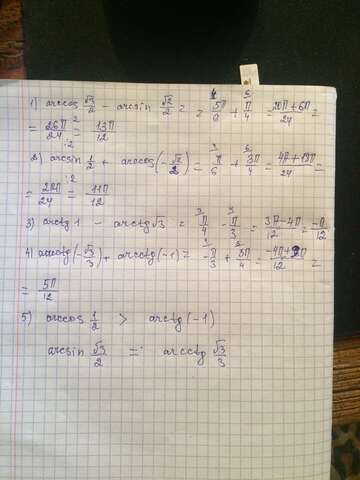 1) arccos √3/2 - arcsin √2/2 = = 5π/6 + π/4 = 20π+6π/24 =
= 26π/24 = 13π/12
2) arcsin 1/2 + arccos(-√2/2) = π/6 + 3π/4 = 4π+18π/24 =
= 22π/24 = 11π/12
3) arctg 1 - arctg √3 = π/4 - π/3 = 3π-4π/12 = -π/12
4) arcctg(-√3/3) + arcctg(-1) = -π/3 + 3π/4 = -4π+9π/12 =
= 5π/12
5) arccos 1/2 > arctg(-1)
arcsin √3/2 = arcctg √3/3